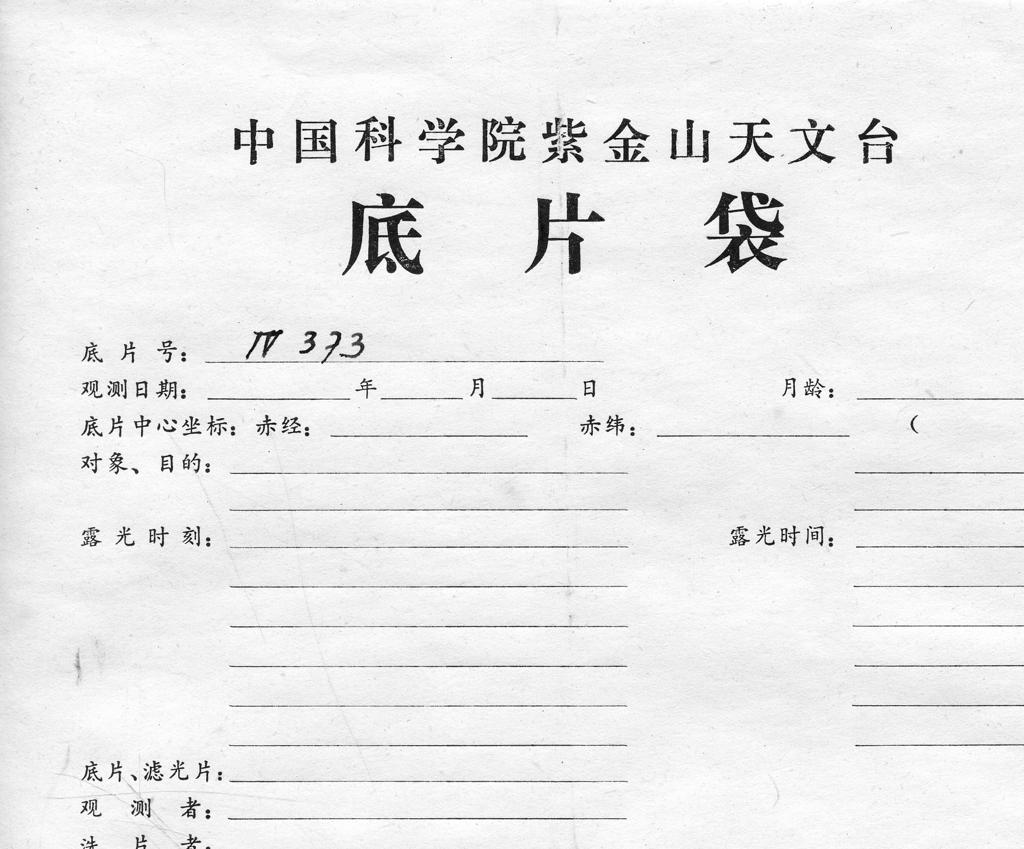 中国科学院紫金山天文台
底片袋
底片号: IV 373
观测日期: 年 月 日 月龄:
底片中心坐标: 赤经: 赤纬: (
对象、目的:
露光时刻: 露光时间:
底片、滤光片:
观测者:
洗片者: